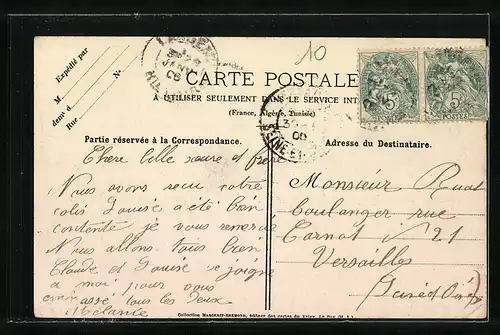 10
Expédié par
M
dans d
N°
Rue
CARTE POSTALE
A UTILISER SEULEMENT DANS LE SERVICE INT
(France, Algérie, Tunisie)
Partie réservée à la Correspondance.
Adresse du Destinataire.
5c 5c
POSTES
JANV
06
Chère belle soeure et frère
Nous avons recu votre
colis Louise a été bien
contente je vous remercie
Nous allons tous bien
Claude et Louise se joigne
a moi pour vous
embrassé tous les deux
Mélanie
Monsieur Ruat
boulanger rue
Carnot n° 21
Versailles
Seine et Oise
Collection MARGERIT-BREMOND, éditeur des cartes du Velay, Le Puy (H.-L.)